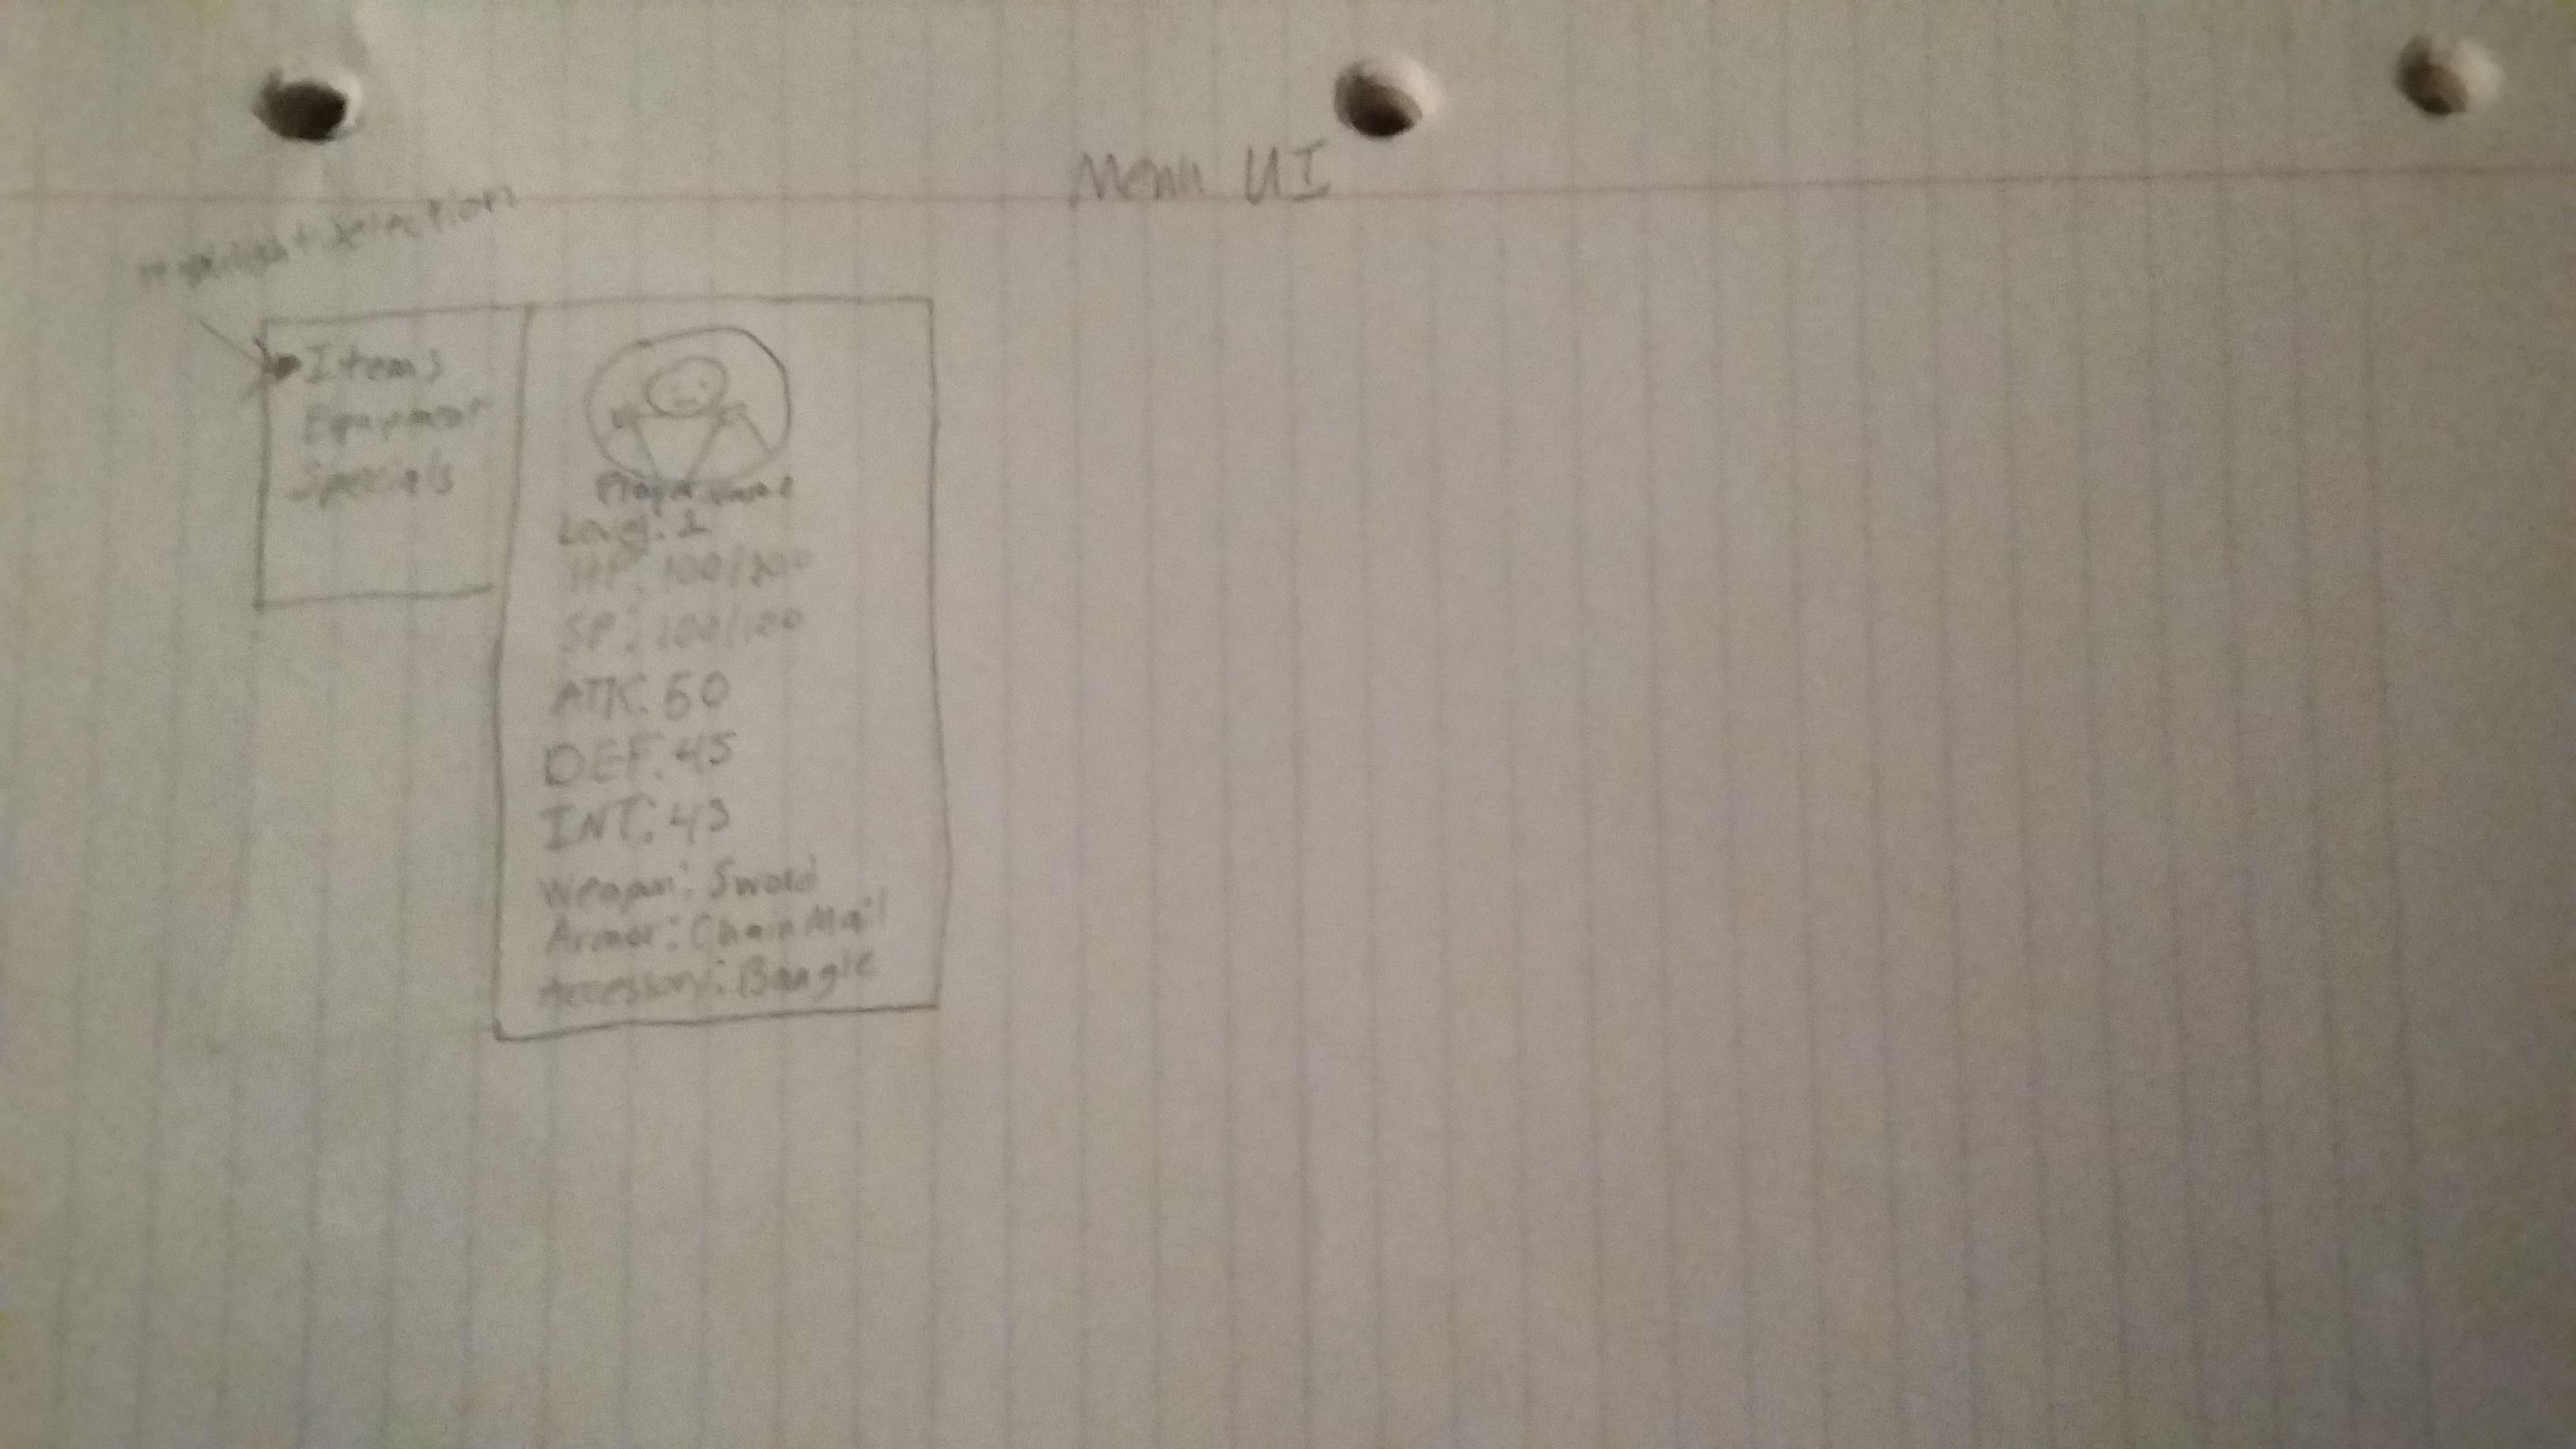 Menu UI
Highlight Selection
Items
Equipment
Specials
Player name
Level: 1
HP: 100/200
SP: 100/100
ATK: 50
DEF: 45
INT: 43
Weapon: Sword
Armor: Chain Mail
Accessory: Bangle